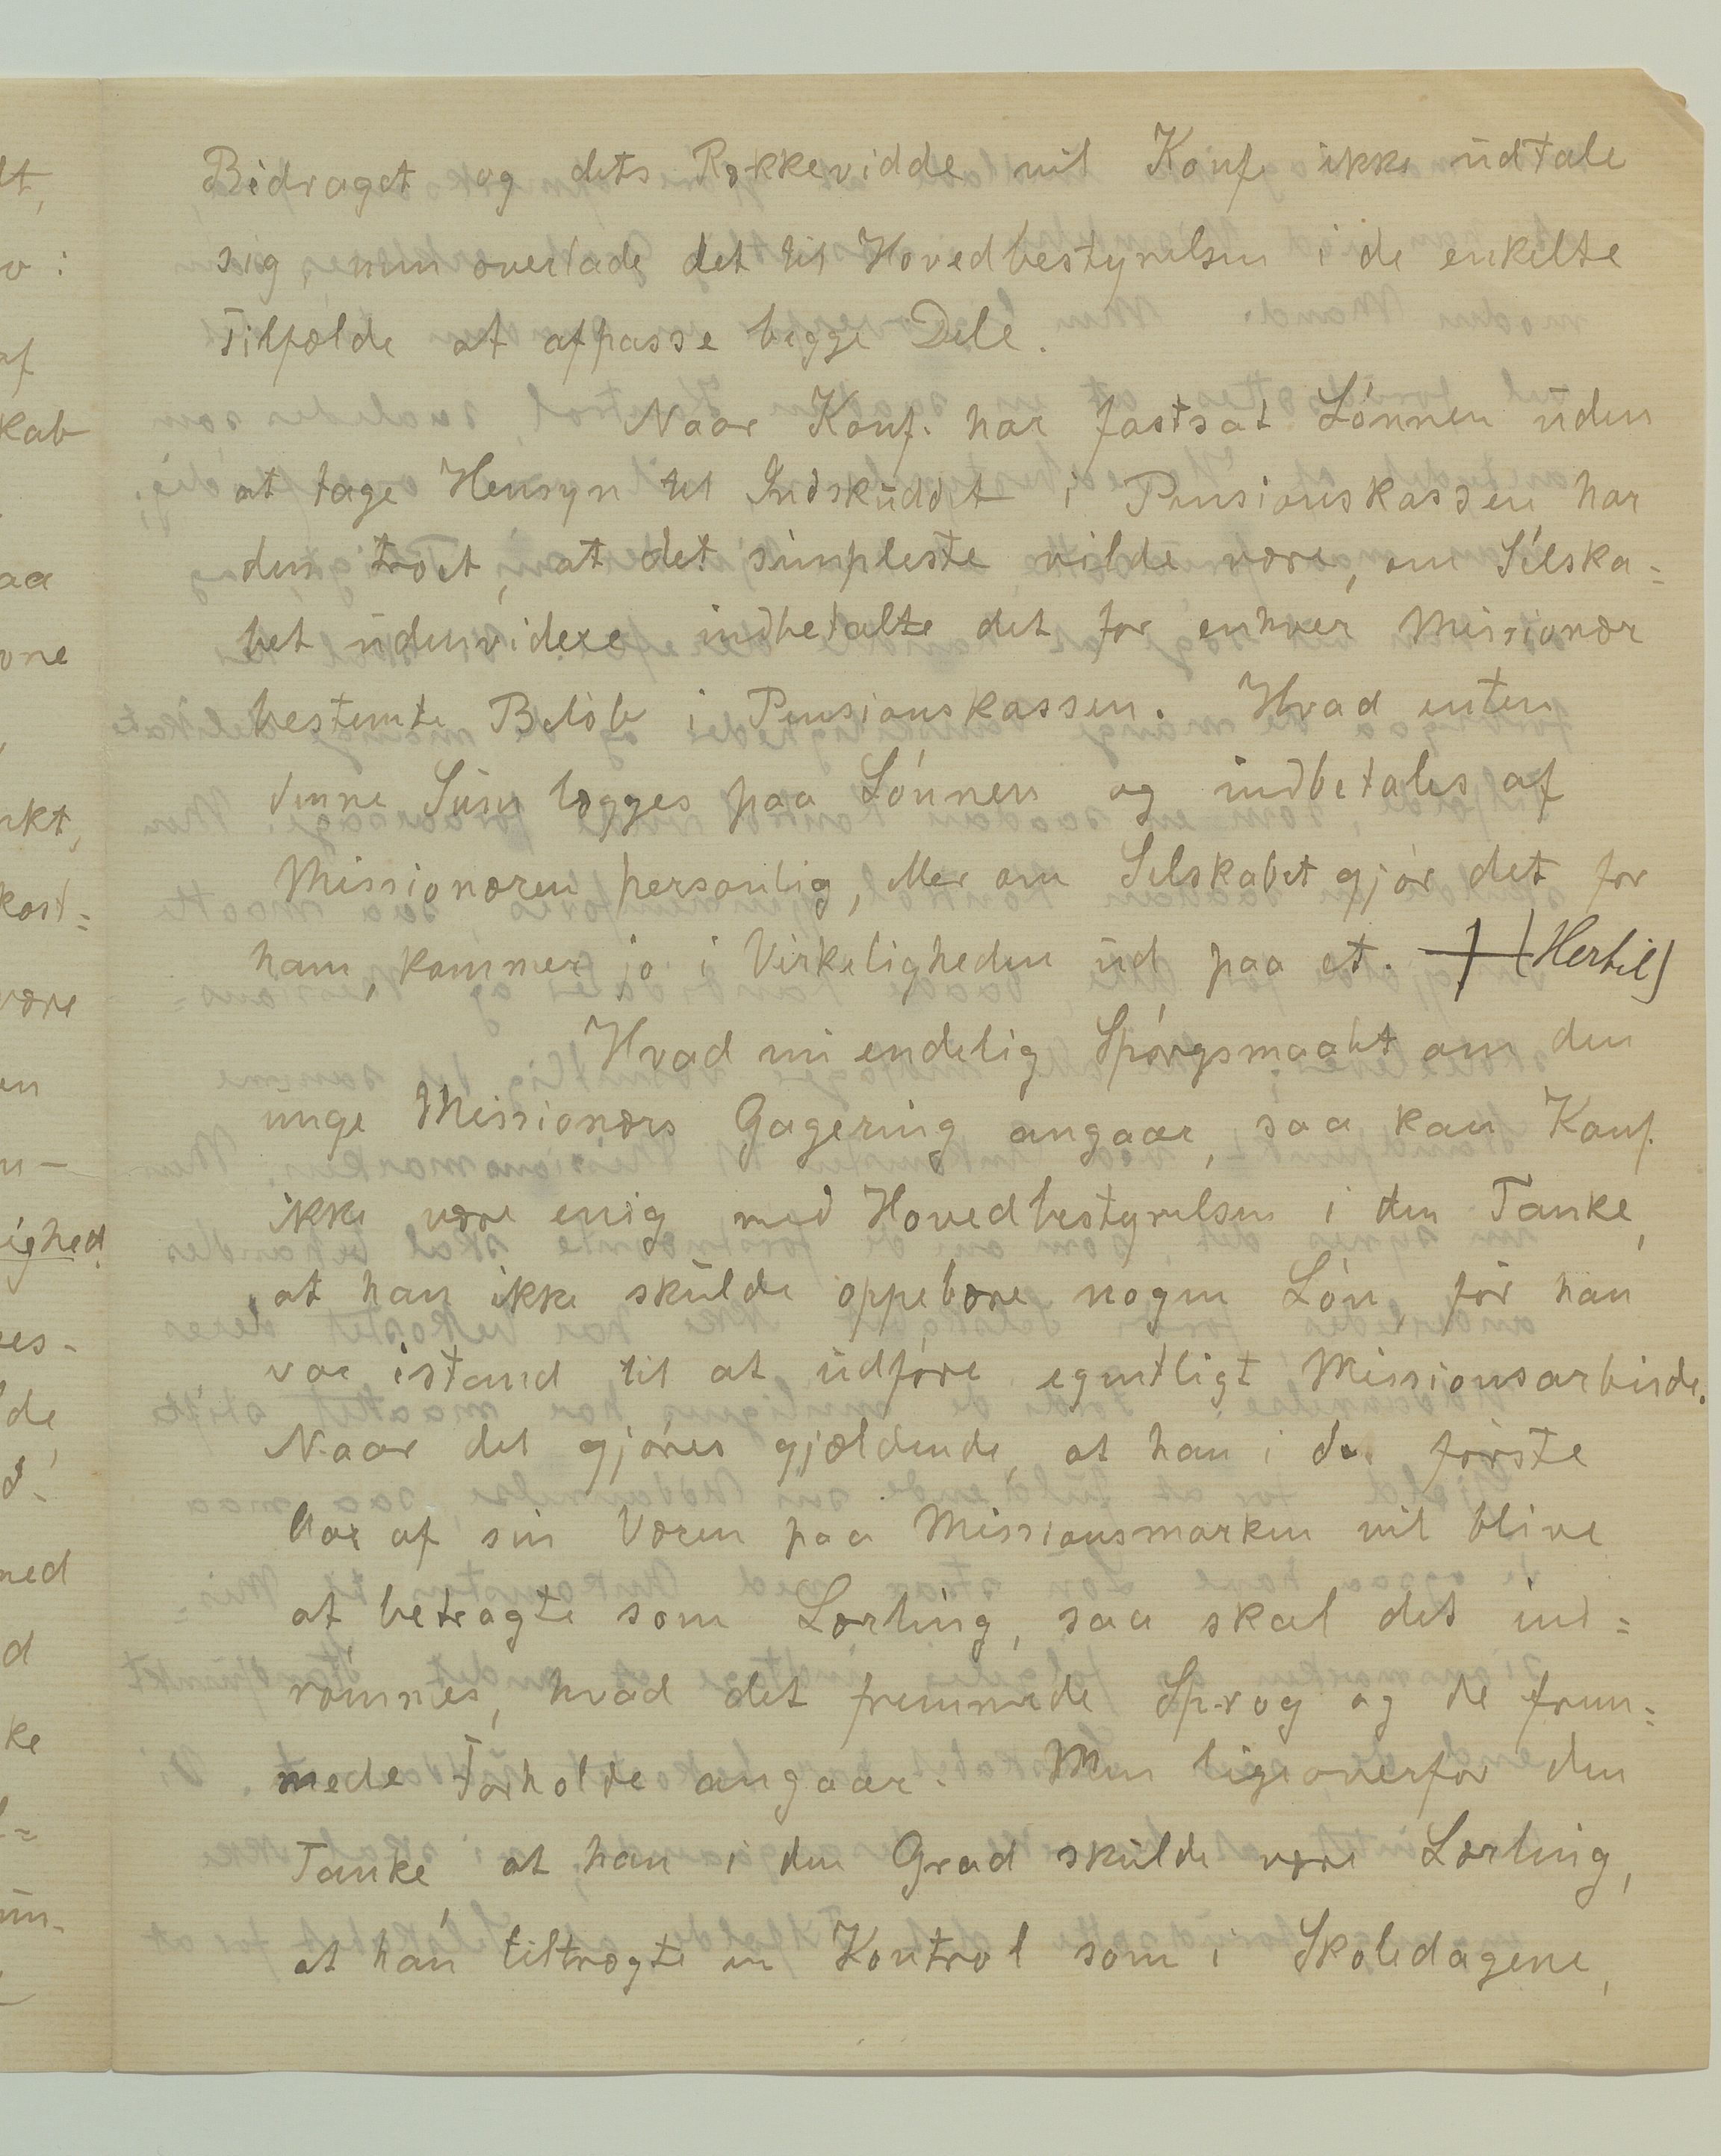 Bidraget og dets Rækkevidde vil Konf. ikke udtale
sig, men overlade det til Hovedbestyrelsen i de enkelte
Tilfælde at afpasse begge Dele.
Naar Konf. har fastsat Lónnen uden
at tage Hensyn til Indskuddet i Pensionskassen har
den troet, at det simpleste vilde være, om Selska=
bet udenvidere indbetalte det for enhver Missionær
bestemte Beløb i Pensionskassen. Hvad enten
denne Sum lægges paa Lónnen og indbetales af
Missionæren personlig, eller om Selskabet gjór det for
ham, kommer jo i Virkeligheden ud paa et. (Hertil)
Hvad nu endelig Spórgsmaalet om den
unge Missionærs Gagering angaar, saa kan Konf.
ikke være enig med Hovedbestyrelsen i den Tanke,
at han ikke skulde oppebære nogen Lón, fór han
var istand til at udfóre egentligt Missionsarbeide.
Naar det gjóres gjældende, at han i de fórste
Aar af sin Væren paa Missionsmarken vil blive
at betragte som Lærling, saa skal det ind=
rómmes, hvad det fremmede Sprog og de frem=
mede Forholde angaar. Men ligeoverfor den
Tanke, at han i den Grad skulde være Lærling,
at han tiltrægte en Kontrol som i Skoledagene,